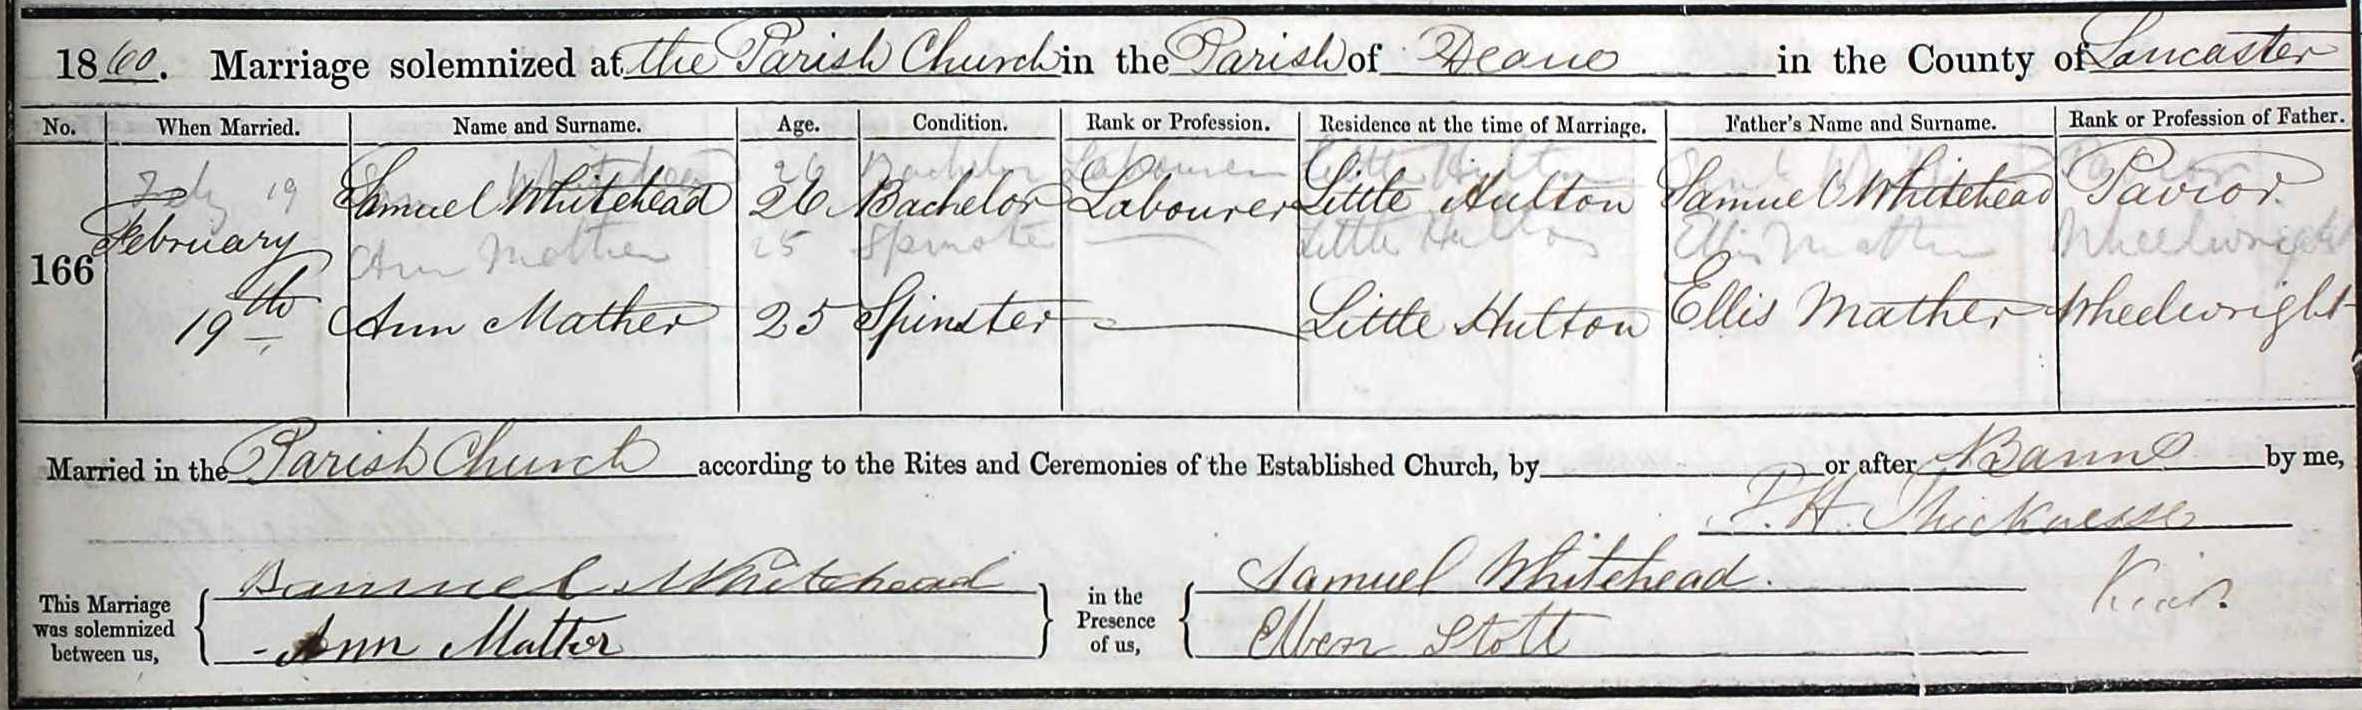 1860. Marriage solemnized at the Parish Church in the Parish of Deane in the County of Lancaster
No. When Married. Name and Surname. Age. Condition. Rank or Profession. Residence at the time of Marriage. Father's Name and Surname. Rank or Profession of Father.
19 Whitehead 26 Bachelor Labourer Little Hulton
February Samuel Whitehead 26 Bachelor Labourer Little Hulton Samuel Whitehead Pavior.
Ann Mather 25 Spinster Little Hulton Ellis Mather Wheelwright
166
19th Ann Mather 25 Spinster Little Hulton Ellis Mather Wheelwright
Married in the Parish Church according to the Rites and Ceremonies of the Established Church, by or after Banns by me,
F. H. Thicknesse
This Marriage was solemnized between us, Samuel Whitehead in the Presence of us, Samuel Whitehead.
Ann Mather Stott